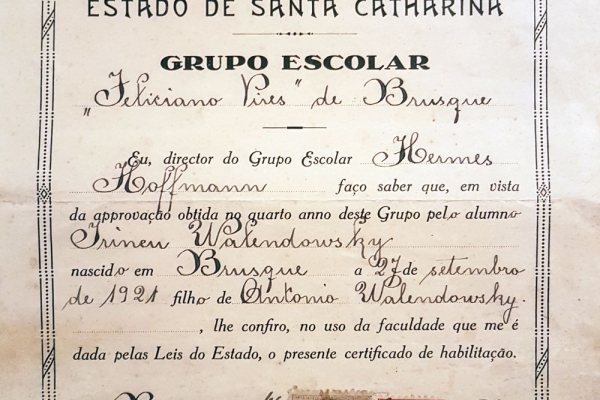 ESTADO DE SANTA CATHARINA
GRUPO ESCOLAR
„Feliciano Pires" de Brusque
Eu, director do Grupo Escolar Hermes
Hoffmann faço saber que, em vista
da approvação obtida no quarto anno deste Grupo pelo alumno
Irineu Walendowsky
nascido em Brusque a 27 de setembro
de 1921 filho de Antonio Walendowsky.
, lhe confiro, no uso da faculdade que me é
dada pelas Leis do Estado, o presente certificado de habilitação.